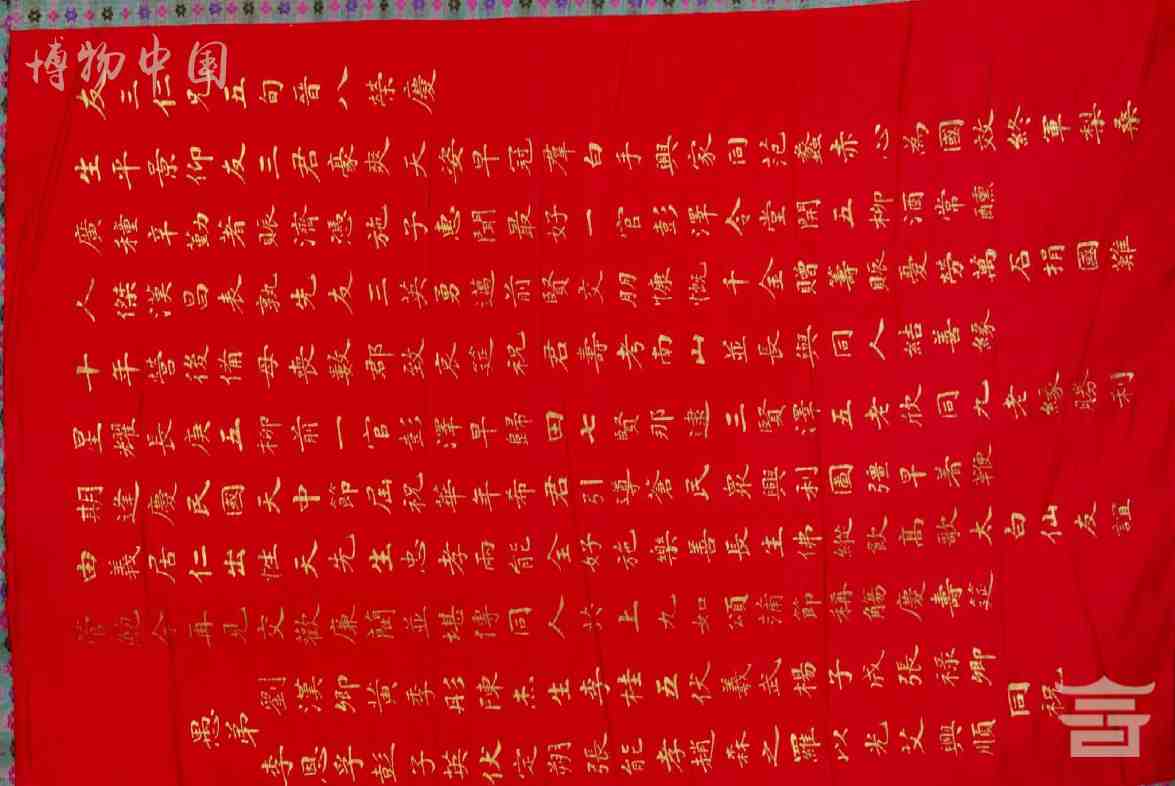 博物中国
友三仁兄五旬晉八榮慶
生平景仰友三君豪爽天姿早冠羣白手興家同范蠡赤心為國效終軍梨棗
廣種辛勤著賑濟憑施子惠聞最好一官彭澤令堂開五柳酒常醺
人傑漢昌表孰先友三英勇邁前賢交朋慷慨千金贈籌賑憂勞萬石捐國難
十年營後備母喪數郡致哀筵祝君壽考南山並長與同人結善緣
星耀長庚五柳前一官彭澤早歸田七賢那逮三賢澤五老欣同九老緣勝利
期逢慶民國天中節屆祝華年希君引導蒼民眾興利圖強早着鞭
由義居仁出性天先生忠孝兩能全好施樂善長生佛縱飲高歌太白仙友誼
管鮑今再見交歡廉藺並堪傳同人共上九如頌蒲節稱觴慶壽筵
愚弟
劉漢卿黃季彤陳杰生李桂五伏羲武楊子成張祿卿
李恩孚彭子英伏定朔張能孝趙森之羅以光艾興順
同祝